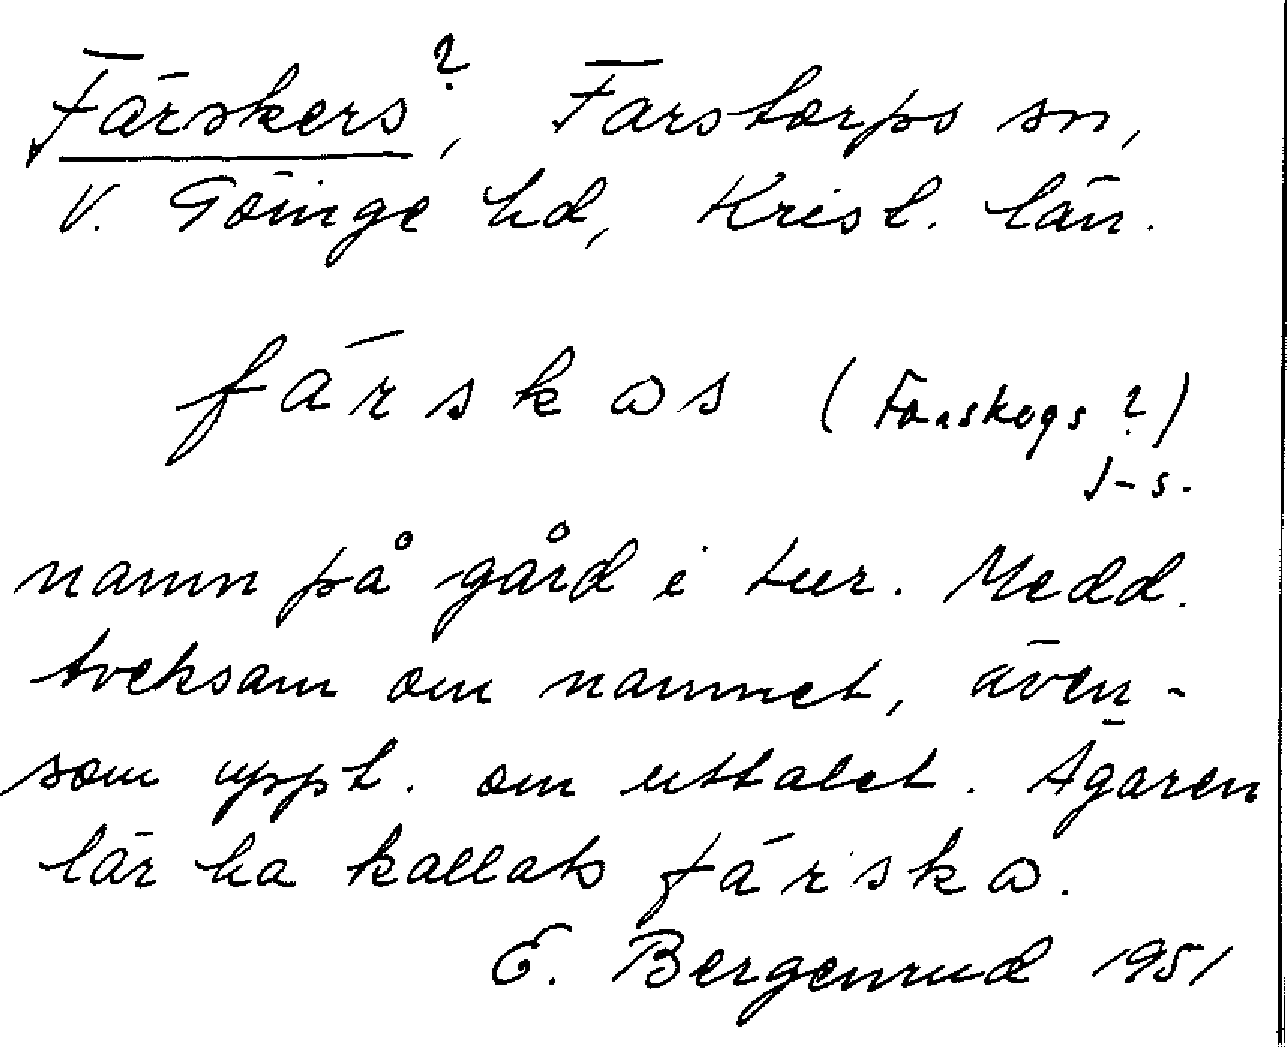 Färskers?, Farstorps sn,
V. Göinge hd, Krist. län.
fárskas (Farskogs?)
J-s.
namn på gård i ter. Medd.
tveksam om namnet, även-
som uppt. om uttalet. Ägaren
lär ha kallats fárska.
E. Bergenrud 1951